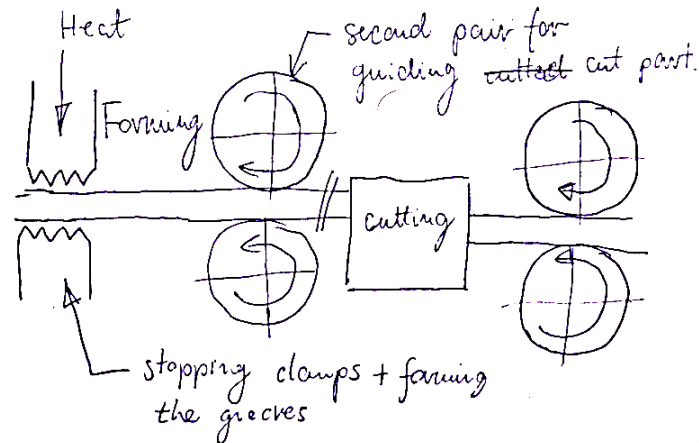 Heat
second pair for
guiding cutted cut part.
Forming
cutting
stopping clamps + forming
the grooves